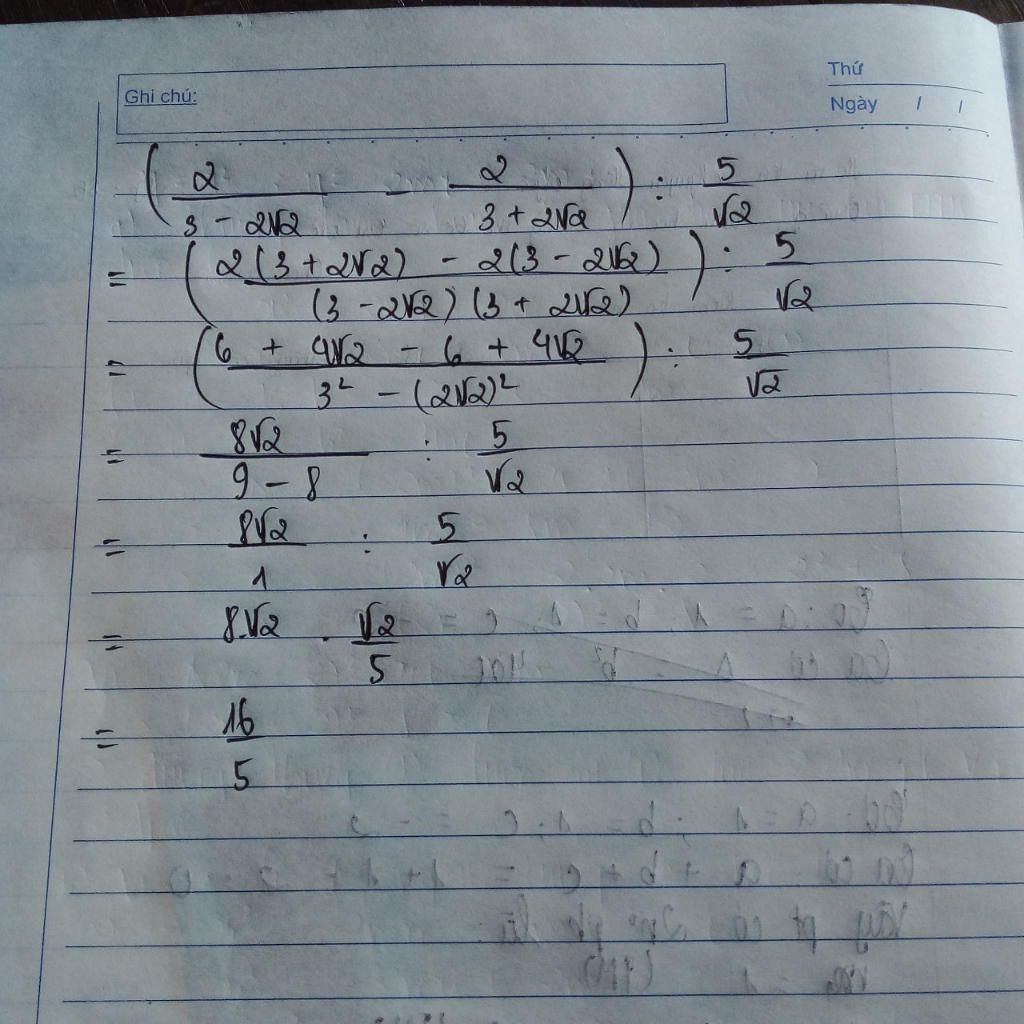 Thứ
Ghi chú:
Ngày / /
( 2/(3 - 2√2) - 2/(3 + 2√2) ) : 5/√2
= ( (2(3 + 2√2) - 2(3 - 2√2))/((3 - 2√2)(3 + 2√2)) ) : 5/√2
= ( (6 + 4√2 - 6 + 4√2)/(3² - (2√2)²) ) : 5/√2
= 8√2/(9 - 8) : 5/√2
= 8√2/1 : 5/√2
= 8.√2 . √2/5
= 16/5